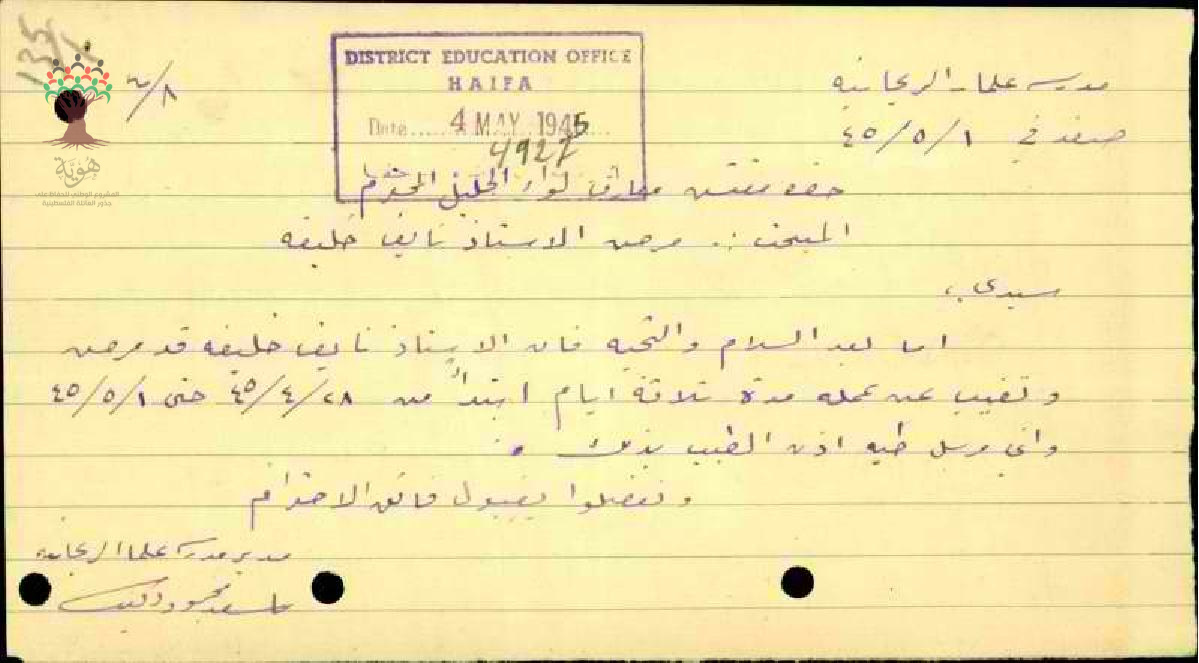 135/1
٨/س
DISTRICT EDUCATION OFFICE
HAIFA
Date..... 4 MAY 1945...
4927
هُويَّة
المشروع الوطني للحفاظ على
جذور العائلة الفلسطينية
مدرسة علما الريحانية
صفد في ٤٥/٥/١
حضرة مفتش معارف لواء الجليل المحترم
المبحث :. مرض الاستاذ نايف خليفه
سيدي ،
اما بعد السلام والتحيه فان الاستاذ نايف خليفه قد مرض
وتغيب عن عمله مدة ثلاثة ايام ابتداءً من ٤٥/٤/٢٨ حتى ٤٥/٥/١
واني مرسل طيه اذن الطبيب بذلك .
وتفضلوا بقبول فائق الاحترام
مدير مدرسة علما الريحانيه
محمود